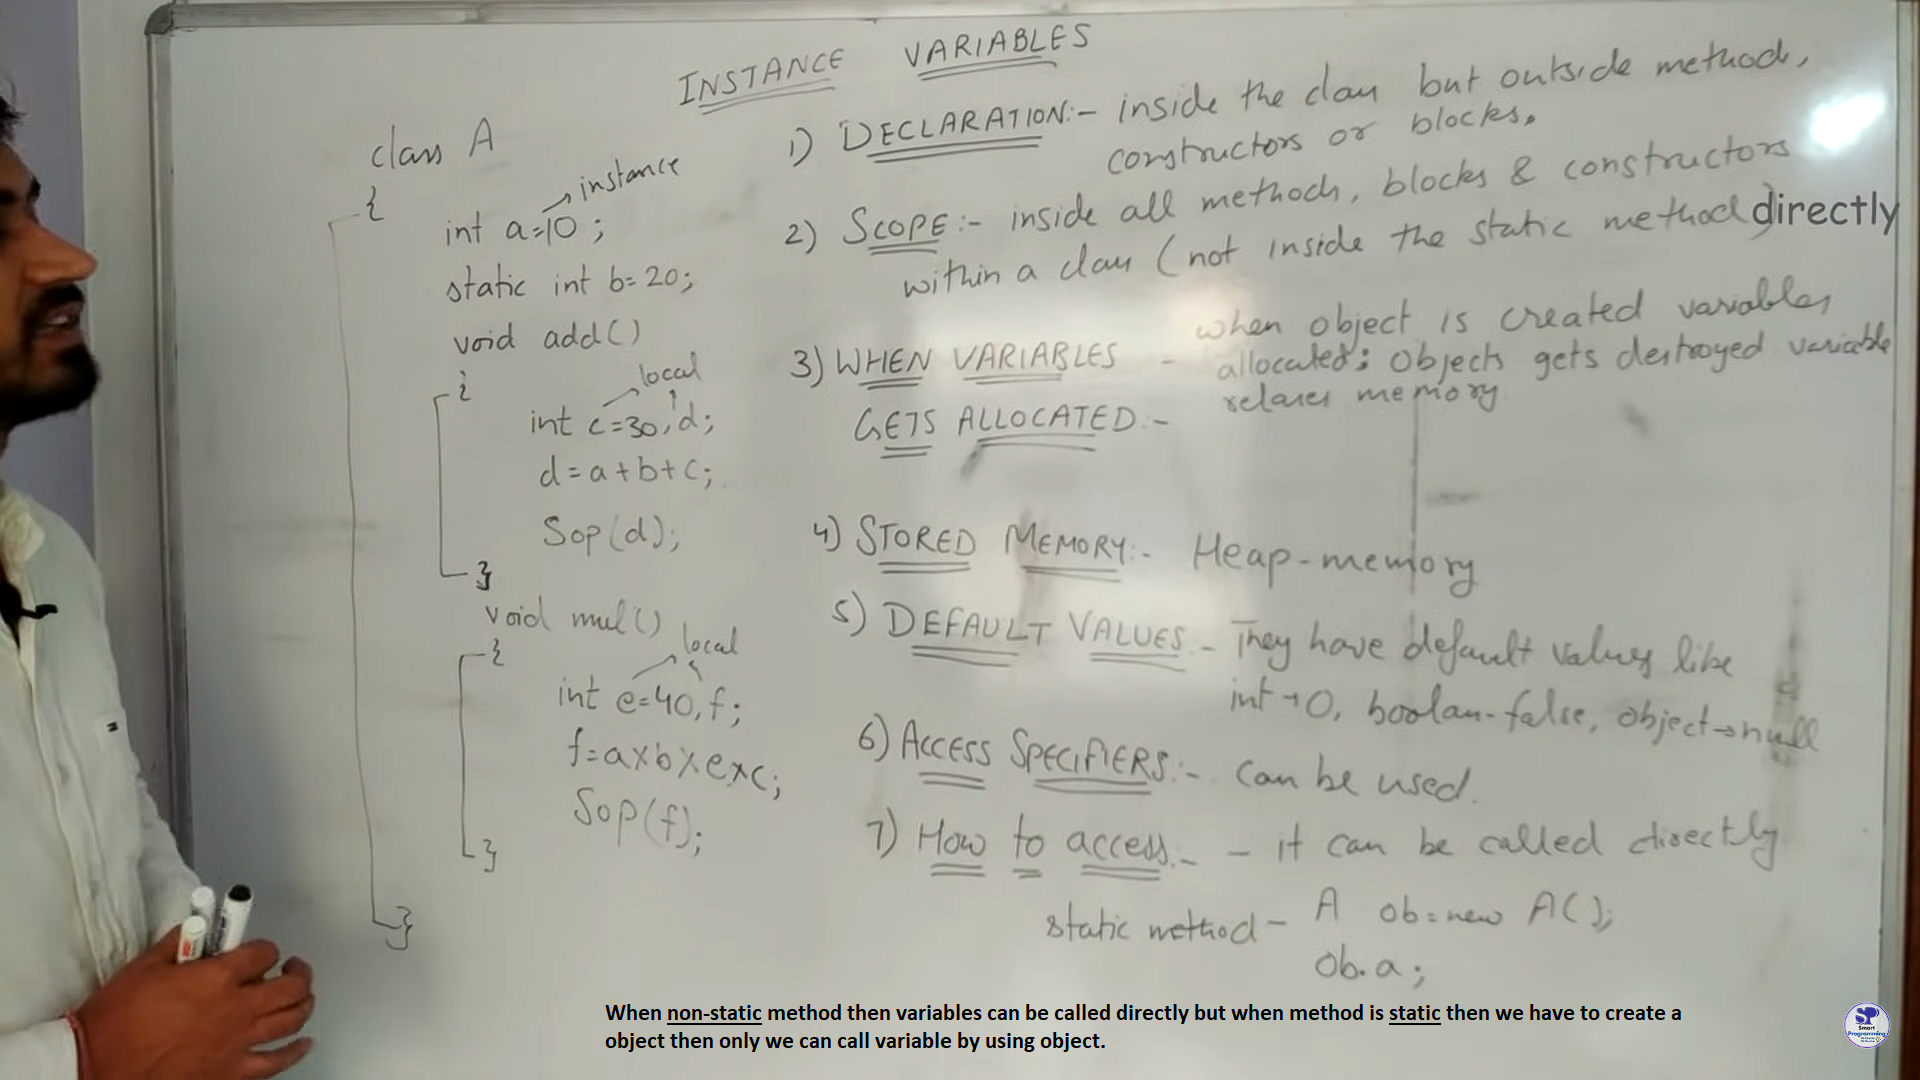 INSTANCE VARIABLES
class A
{
int a=10;
instance
static int b=20;
void add()
{
local
int c=30,d;
d=a+b+c;
Sop(d);
}
void mul()
{
local
int e=40,f;
f=axbxexc;
Sop(f);
}
}
1) DECLARATION:- inside the class but outside method,
constructors or blocks.
2) SCOPE:- inside all methods, blocks & constructors
within a class (not inside the static method) directly
3) WHEN VARIABLES - when object is created variables
GETS ALLOCATED:- allocated; objects gets destroyed variable
relases memory.
4) STORED MEMORY:- Heap-memory
5) DEFAULT VALUES:- They have default values like
int→0, boolan-false, object→null
6) ACCESS SPECIFIERS:- can be used.
7) How to access:- - it can be called directly
static method - A ob=new A();
ob.a;
When non-static method then variables can be called directly but when method is static then we have to create a
object then only we can call variable by using object.
SP
Smart
Programming